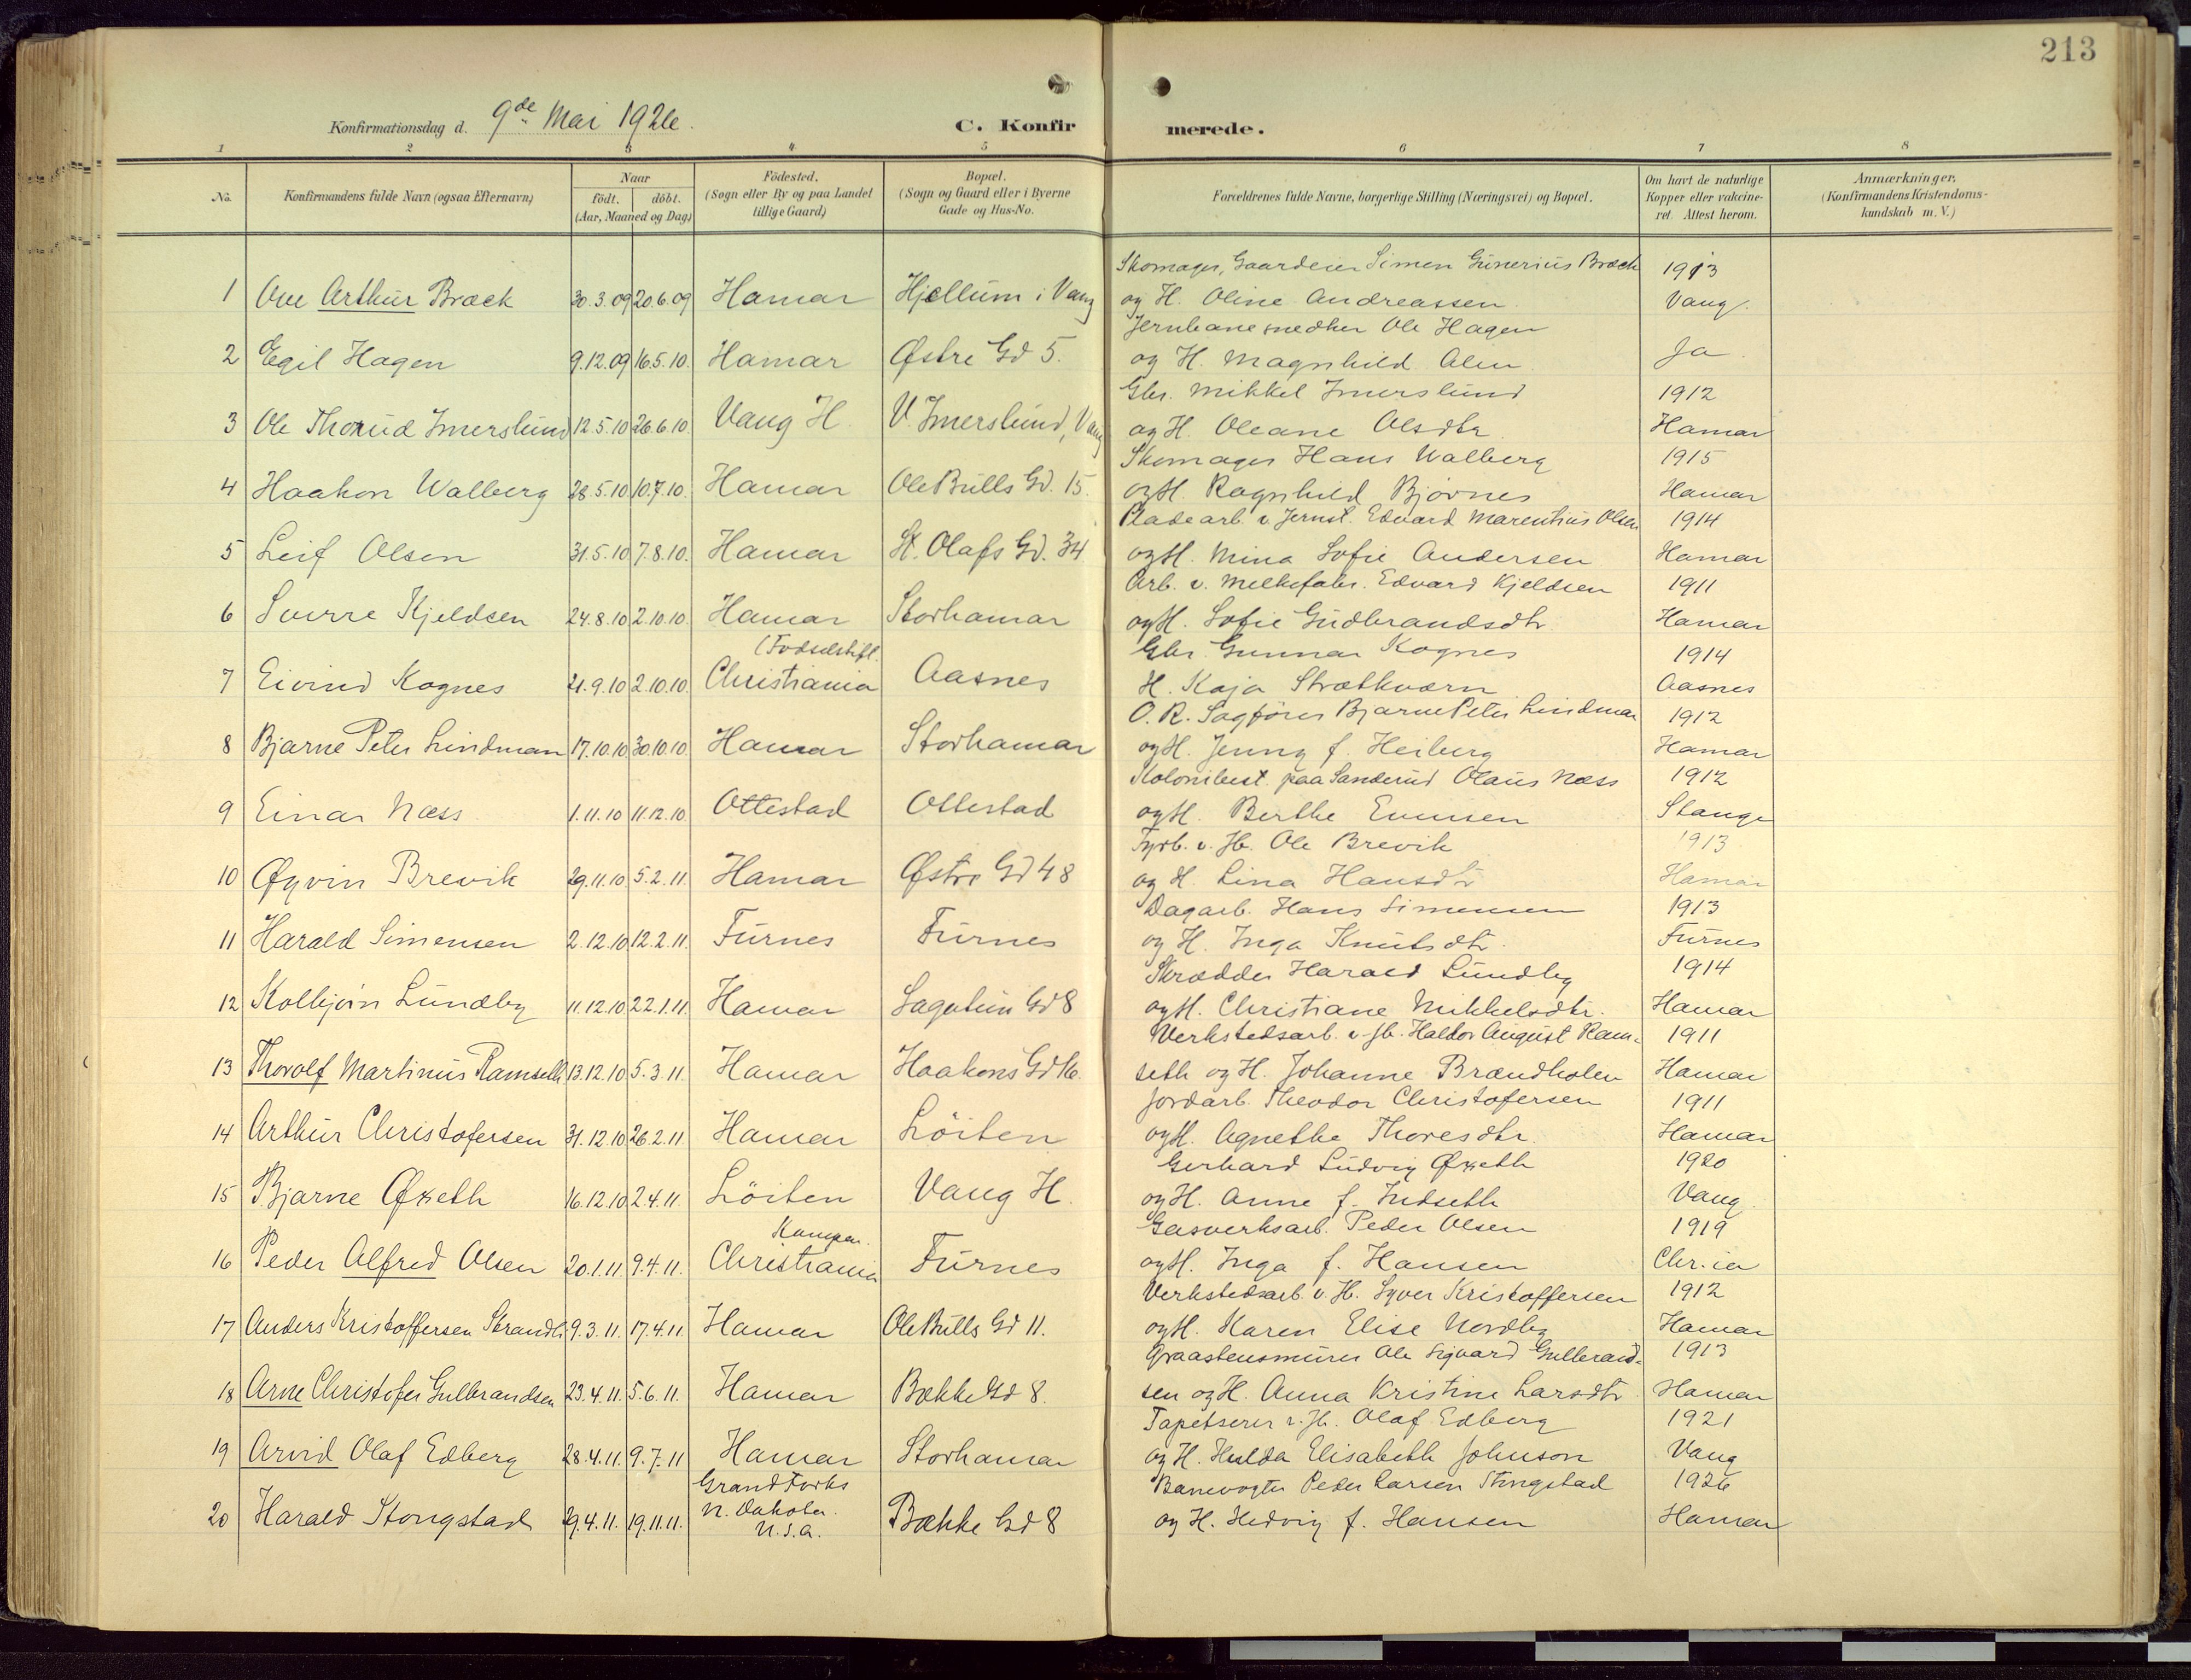 213
Konfirmationsdag d. 9de Mai 1926.
C. Konfirmerede.
1 2 3 4 5 6 7 8
No.
Konfirmandens fulde Navn (ogsaa Efternavn)
Naar
født. døbt.
(Aar, Maaned og Dag)
Fødested.
(Sogn eller By og paa Landet
tillige Gaard)
Bopæl.
(Sogn og Gaard eller i Byerne
Gade og Hus-No.
Forældrenes fulde Navne, borgerlige Stilling (Næringsvei) og Bopæl.
Om havt de naturlige
Kopper eller vakcine-
ret. Attest herom.
Anmærkninger.
(Konfirmandens Kristendoms-
kundskab m. V.)
Skomager, Gaardeier Simen Gunerius Bræck 1913
1 Ove Arthur Bræck 30.3.09 20.6.09 Hamar Hjellum i Vang og H. Oline Andreassen Vang.
Jernbanesnedker Ole Hagen
2 Egil Hagen 9.12.09 16.5.10. Hamar Østre Gd 5. og H. Magnhild Alm Ja
Gbr. Mikkel Imerslund 1912
3 Ole Thorud Imerslund 12.5.10 26.6.10. Vang H. V. Imerslund, Vang og H. Oleane Olsdtr. Hamar
Skomager Hans Walberg 1915
4 Haakon Walberg 28.5.10 10.7.10. Hamar Ole Bulls Gd. 15. og H. Ragnhild Bjørnes Hamar
Pladearb. v. Jernst. Edvard Marentius Olsen 1914
5 Leif Olsen 31.5.10 7.8.10. Hamar St. Olafs Gd. 34 og H. Mina Sofie Andersen Hamar
Arb. v. Melkefabr. Edvard Kjeldsen 1911
6 Sverre Kjeldsen 24.8.10 2.10.10. Hamar Storhamar og H. Sofie Gudbrandsdtr. Hamar
(Fødselstift. Gbr. Gunnar Kognes 1914
7 Eivind Kognes 21.9.10 2.10.10. Christiania Aasnes H. Kaja Strætkværn Aasnes
O. R. Sagfører Bjarne Peter Lindman 1912
8 Bjarne Peter Lindman 17.10.10 30.10.10 Hamar Storhamar og H. Jenny f. Heiberg Hamar
Kolonibest. paa Sanderud Olaus Næss 1912
9 Einar Næss 1.11.10 11.12.10 Ottestad Ottestad og H. Berthe Evensen Stange
Fyrb. v. Jb. Ole Brevik 1913
10 Øyvin Brevik 29.11.10 5.2.11. Hamar Østre Gd 48 og H. Lina Hansdtr Hamar
Dagarb. Hans Simensen 1913
11 Harald Simensen 2.12.10 12.2.11. Furnes Furnes og H. Inga Knutsdtr. Furnes
Skrædder Harald Lundby 1914
12 Kolbjørn Lundby 11.12.10 22.1.11. Hamar Sagatun Gd 8 og H. Christiane Mikkelsdtr. Hamar
Verkstedsarb. v. Jb. Haldor August Ram- 1911
13 Thorolf Martinus Ramseth 13.12.10 5.3.11. Hamar Haakons Gd 16. seth og H. Johanne Brændholen Hamar
Jordarb. Theodor Christofersen 1911
14 Arthur Christofersen 31.12.10 26.2.11. Hamar Löiten og H. Agnethe Thoresdtr. Hamar
Gerhard Ludvig Øxseth 1920
15 Bjarne Øxseth 16.12.10 2.4.11. Löiten Vang H. og H. Anne f. Indseth Vang
Kampen. Gasverksarb. Peder Olsen 1919
16 Peder Alfred Olsen 20.1.11. 9.4.11. Christiania Furnes og H. Inga f. Hansen Chr.ia
Verkstedsarb. v. H. Syver Kristoffersen 1912
17 Anders Kristoffersen Strandli 9.3.11. 17.4.11. Hamar Ole Bulls Gd 11. og H. Karen Elise Nordby Hamar
Graastensmurer Ole Sigvard Gulbrand- 1913
18 Arne Christofer Gulbrandsen 23.4.11. 5.6.11. Hamar Bække Gd 8. sen og H. Anna Kristine Larsdtr. Hamar
Tapetserer v. Jb. Olaf Edberg 1921
19 Arvid Olaf Edberg 28.4.11. 9.7.11 Hamar Storhamar og H. Hulda Elisabeth Johnson Vang
Grand Forks Banevogter Peder Larsen Stungstad 1926
20 Harald Stongstad 29.4.11. 19.11.11. N. Dakota. Bække Gd 8 og H. Hedvig f. Hansen Hamar
U.S.A.